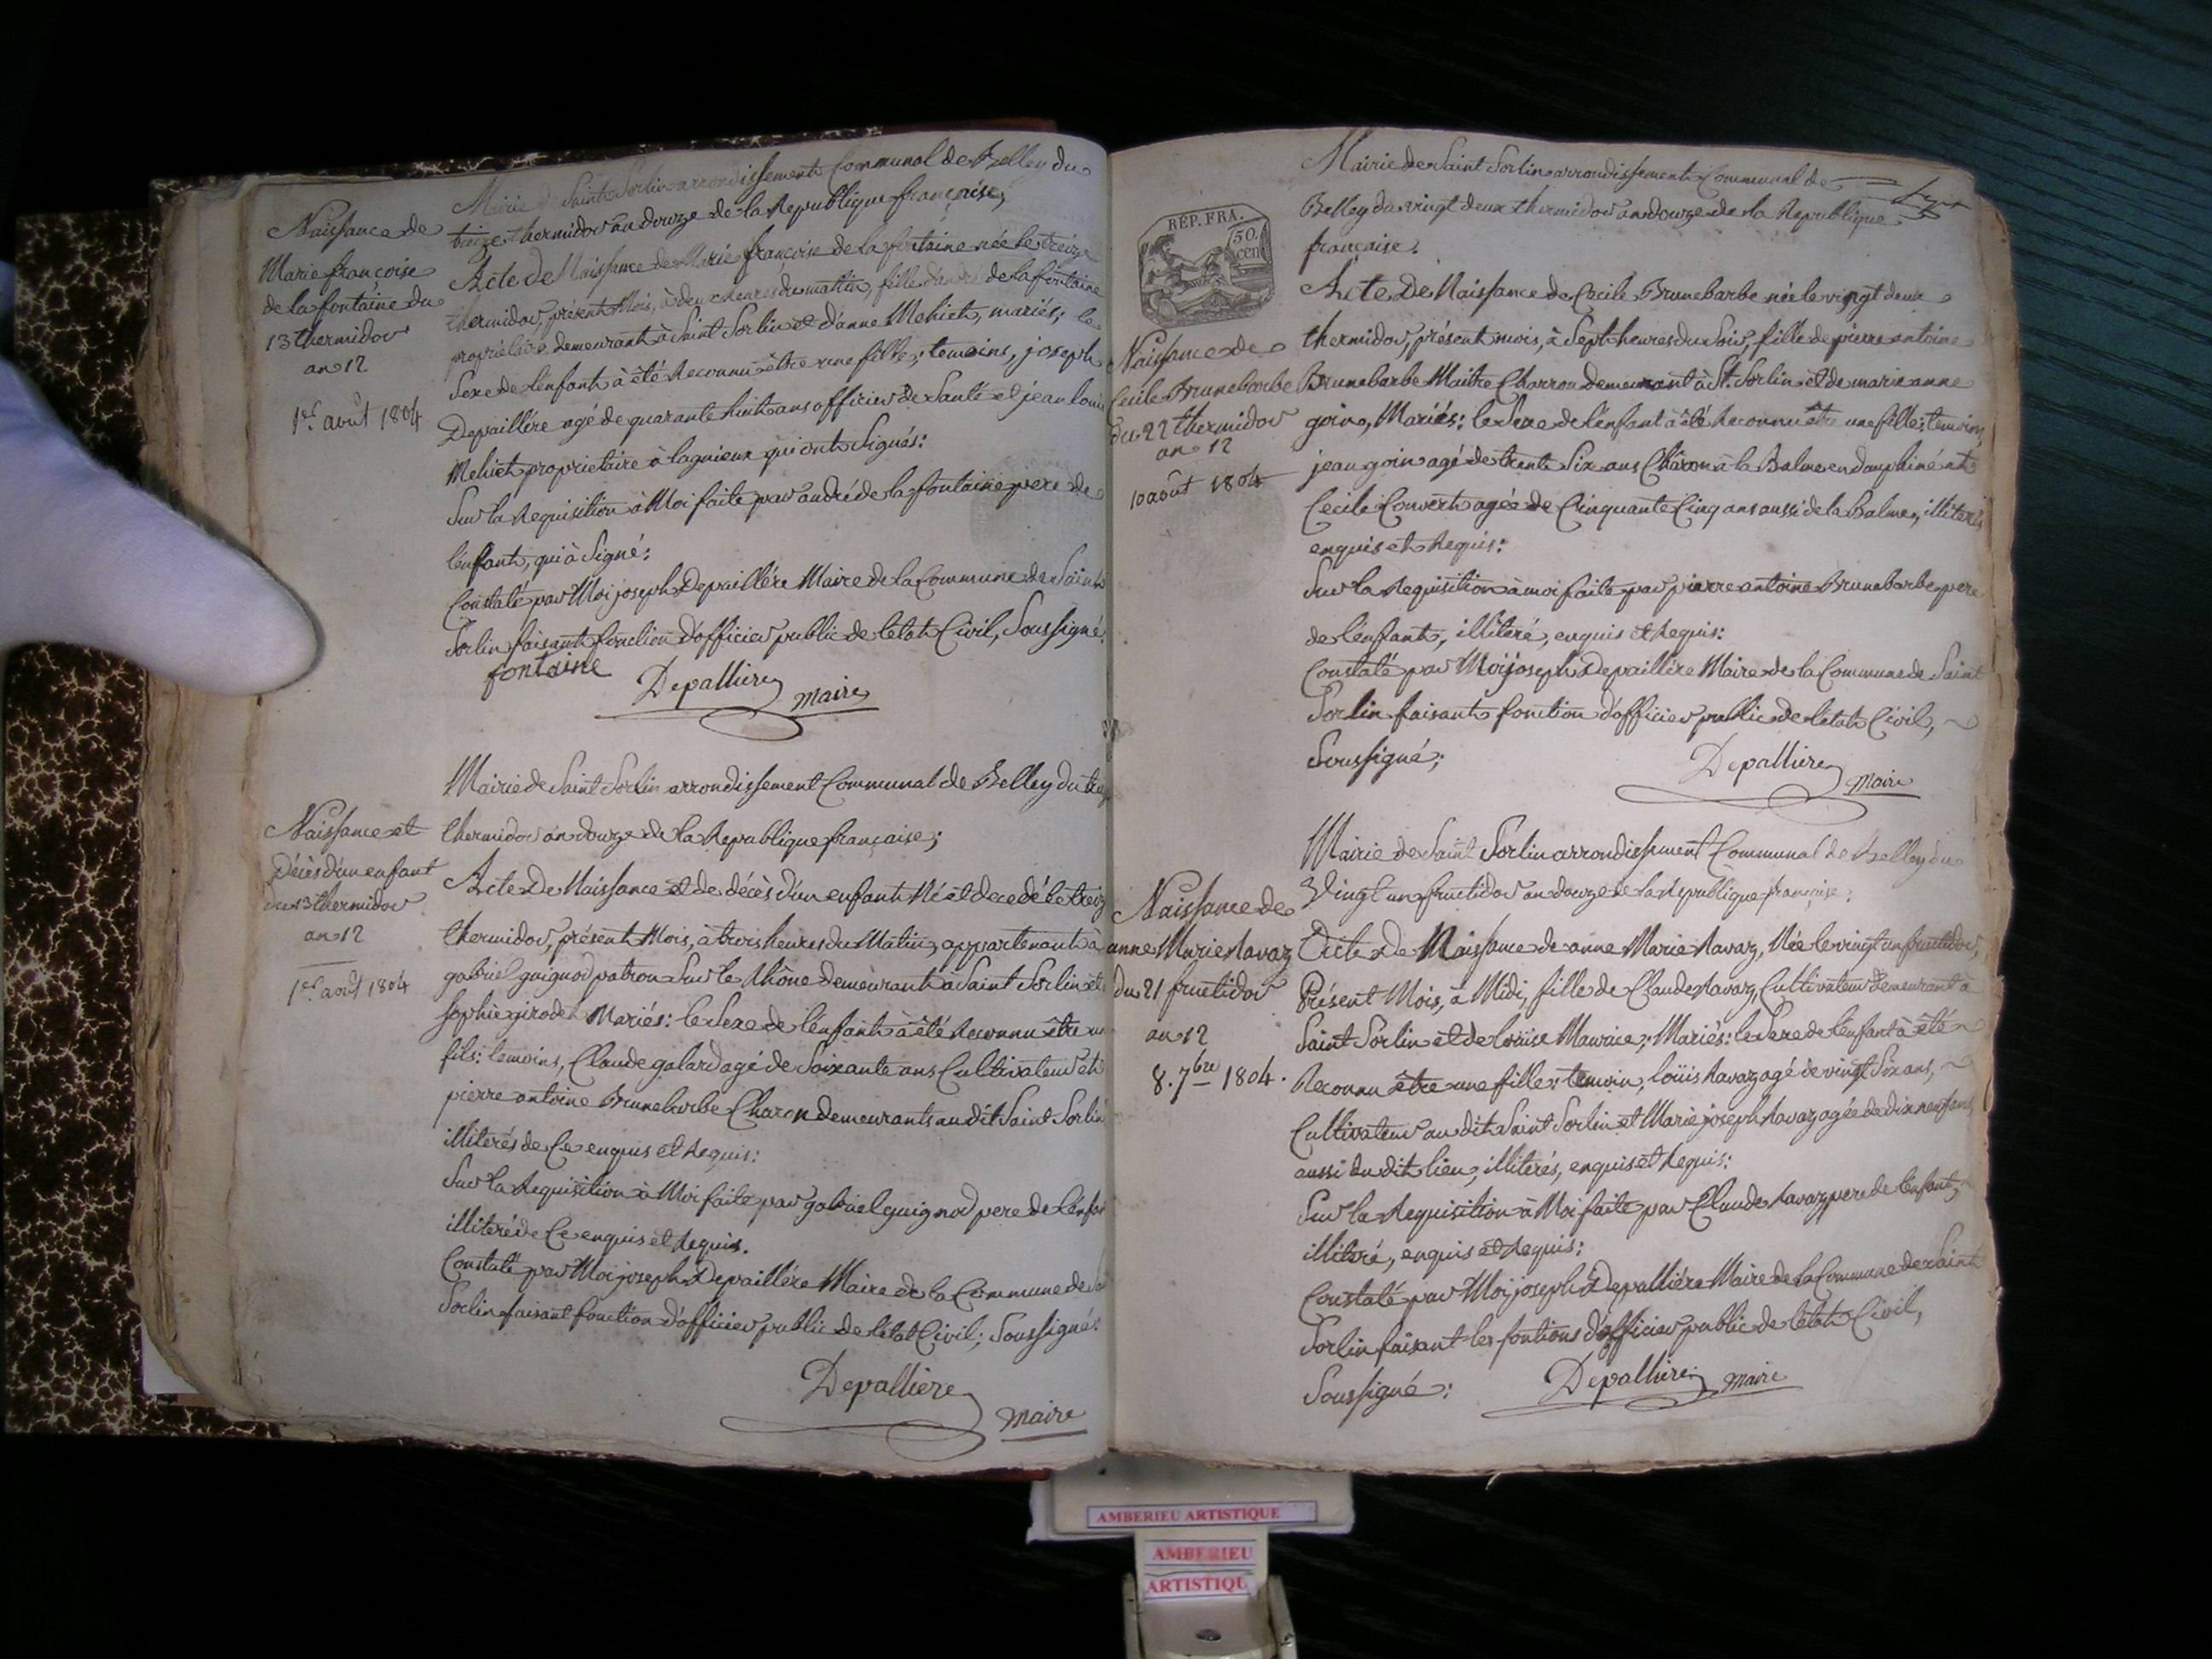 Naissance de
Marie françoise
de la fontaine du
13 thermidor
an 12
1er. août 1804
Mairie de Saint Sorlin arrondissement Communal de Belley du
treize thermidor an douze de la Republique française,
Acte de Naissance de Marie françoise de la fontaine née le treize
thermidor, présent Mois, à deux heures du matin, fille d'andré de la fontaine
propriétaire demeurant à Saint Sorlin et d'anne Mehiet, mariés; le
Sexe de l'enfant à été Reconnu être une fille; temoins, joseph
Depaillére agé de quarante huit ans officier de Santé et jean louis
Mehiet proprietaire à lagnieux qui ont Signés:
Sur la Requisition à Moi faite par andré de la fontaine pere de
l'enfant, qui à Signé:
Constaté par Moi joseph Depaillére Maire de la Commune de Saint
Sorlin faisant fonction d'officier public de l'etat Civil, Soussigné:
fontaine
Depalliere maire
Naissance et
Décès d'un enfant
du 13 thermidor
an 12
1er. août 1804
Mairie de Saint Sorlin arrondissement Communal de Belley du
thermidor an douze de la Republique française;
Acte De Naissance et de décès d'un enfant Né et decedé le treize
thermidor, présent Mois, à trois heures du Matin, appartenant à
gabriel guignod patron Sur le Rhône demeurant à Saint Sorlin et
Sophie girodet Mariés: le Sexe de l'enfant à été Reconnu être un
fils: temoins, Claude galard agé de Soixante ans Cultivateur et
pierre antoine Brunebarbe Charon demeurants au dit Saint Sorlin
illiterés de Ce enquis et Requis:
Sur la Requisition à Moi faite par gabriel guignod pere de l'enfant
illiteré de Ce enquis et Requis.
Constaté par Moi joseph Depaillére Maire de la Commune de
Sorlin faisant fonction d'officier public de l'etat Civil; Soussigné:
Depalliere
maire
RÉP. FRA.
50.
cent
Naissance de
Cecile Brunebarbe
du 22 thermidor
an 12
10 août 1804
Mairie de Saint Sorlin arrondissement Communal de
Belley du vingt deux thermidor an douze de la Republique
française.
Acte De Naissance de Cecile Brunebarbe née le vingt deux
thermidor, présent mois, à Sept heures du Soir, fille de pierre antoine
Brunebarbe Maitre Charron demeurant à St. Sorlin et de marie anne
goin, Mariés: le Sexe de l'enfant à été Reconnu être une fille; temoins,
jean goin agé de trente Six ans Charon à la Balme en dauphiné et
Cecile Convert agée de Cinquante Cinq ans aussi de la Balme, illiterés
enquis et Requis:
Sur la Requisition à moi faite par pierre antoine Brunebarbe pere
de l'enfant, illiteré, enquis et Requis:
Constaté par Moi joseph Depaillére Maire de la Commune de Saint
Sorlin faisant fonction d'officier public de l'etat Civil,
Soussigné;
Depalliere maire
Naissance de
anne Marie Ravaz
du 21 fructidor
an 12
8. 7bre 1804.
Mairie de Saint Sorlin arrondissement Communal de Belley du
Vingt un fructidor an douze de la Republique française:
Acte de Naissance de anne Marie Ravaz, Née le vingt un fructidor,
Présent Mois, à Midi, fille de Claude Ravaz, Cultivateur demeurant à
Saint Sorlin et de loüise Maurice; Mariés: le Sexe de l'enfant à été
Reconnu être une fille; temoin, loüis Ravaz agé de vingt Six ans,
Cultivateur au dit Saint Sorlin et Marie joseph Ravaz agée de dix neuf ans
aussi du dit lieu, illiterés, enquis et Requis:
Sur la Requisition à Moi faite par Claude Ravaz pere de l'enfant,
illiteré, enquis et Requis:
Constaté par Moi joseph Depalliére Maire de la Commune de Saint
Sorlin faisant les fontions d'officier public de l'etat Civil,
Soussigné: Depalliere maire
AMBERIEU ARTISTIQUE
AMBERIEU
ARTISTIQU